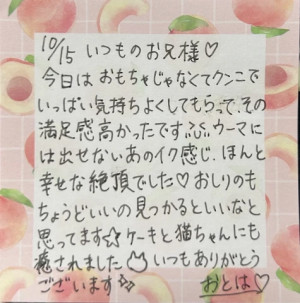 10/15 いつものお兄様♡
今日はおもちゃじゃなくてクンニで
いっぱい気持ちよくしてもらって、その
満足感高かったです💦ウーマに
は出せないあのイク感じ、ほんと
幸せな絶頂でした♡おしりのも
ちょうどいいの見つかるといいなと
思ってます☆ケーキと猫ちゃんにも
癒されました いつもありがとう
ございます✨
おとは♡